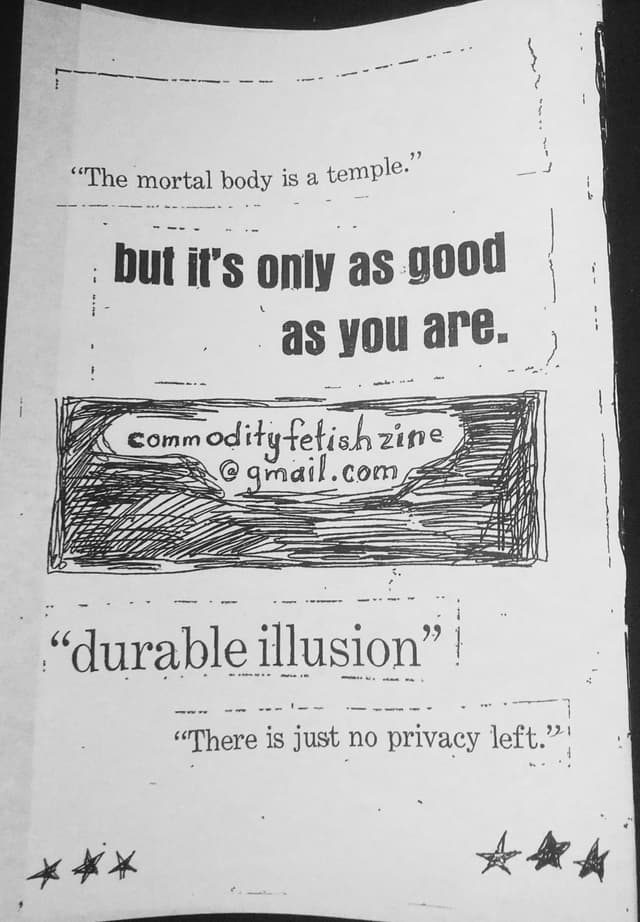 “The mortal body is a temple.”
but it's only as good
as you are.
commodityfetishzine
@gmail.com
“durable illusion”
“There is just no privacy left.”